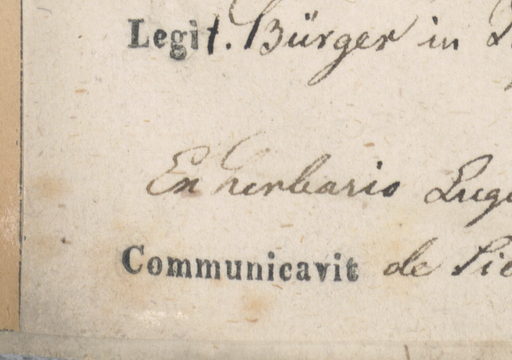 Legit. Bürger in
Ex herbario Lugd
Communicavit de